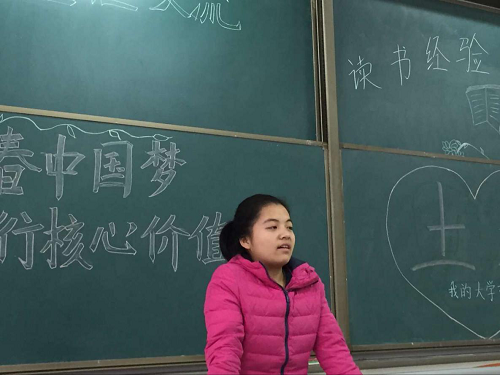 流
读书经验
春中国梦
行核心价值
士
我的大学